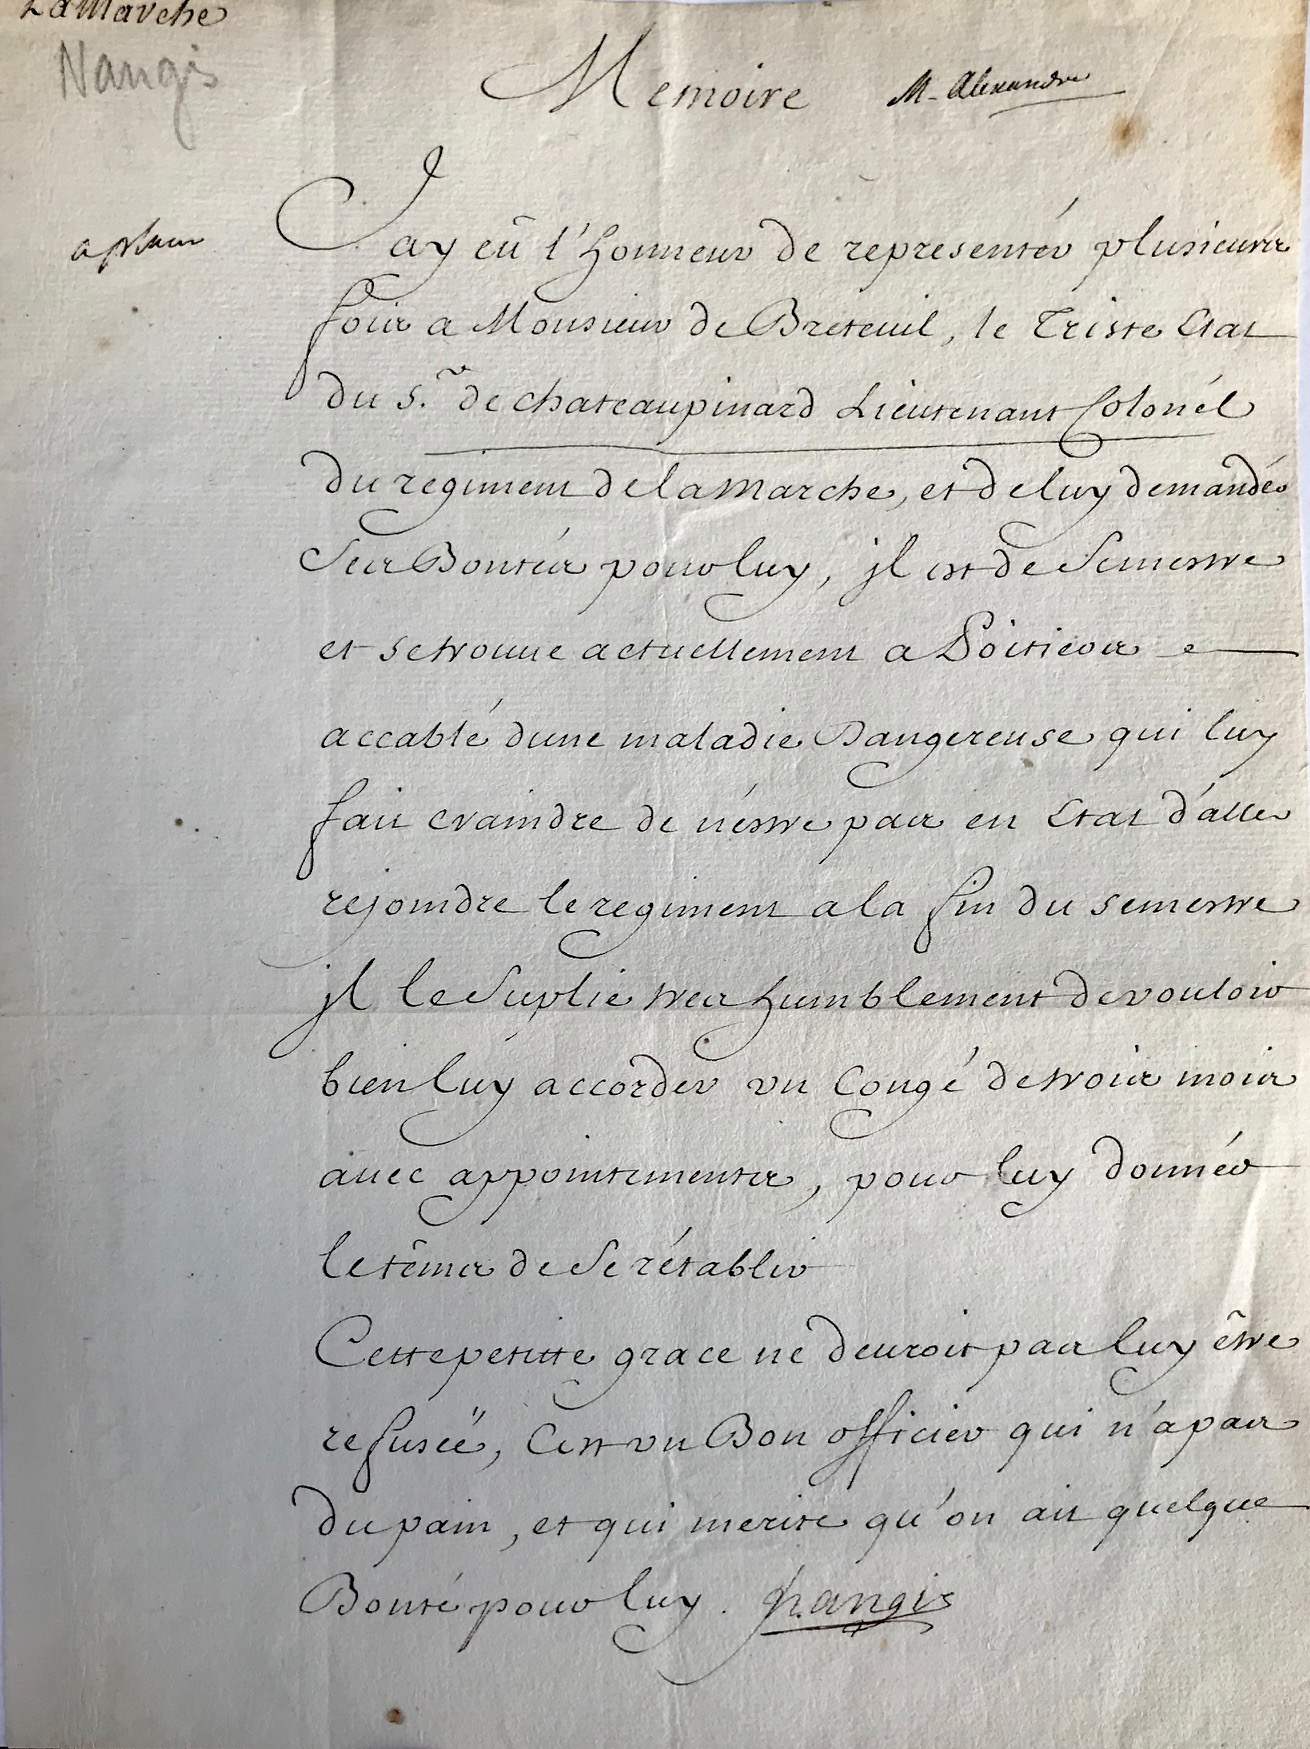 LaMarche
Nangis
Memoire
M. Alexandre
Jay eû l'honneur de representér plusieurs
fois a Monsieur de Breteuil, le Triste Etat
du S.r de chateaupinard Lieutenant Colonél
du regiment de la Marche, et de luy demandér
Ses Bontés pour luy, jl est de Semestre
et se trouue actuellement a Poitiers
accablé dune maladie Dangereuse qui luy
fait craindre de n'éstre pas en Etat d'aller
rejoindre le regiment a la fin du semestre
jl le Suplie tres humblement de vouloir
bien luy accorder vn Congé de trois mois
auec appointements, pour luy donnér
le têms de Se rétablir
Cette petitte grace ne deuroit pas luy être
refuseë, Cest vn Bon officier qui n'a pas
du pain, et qui merite qu'on ait quelque
Bonté pour luy. Nangis